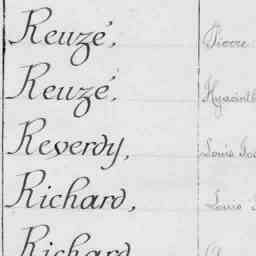 Reuzé, Pierre
Reuzé,
Reverdy, Louis
Richard, Louis
Richard